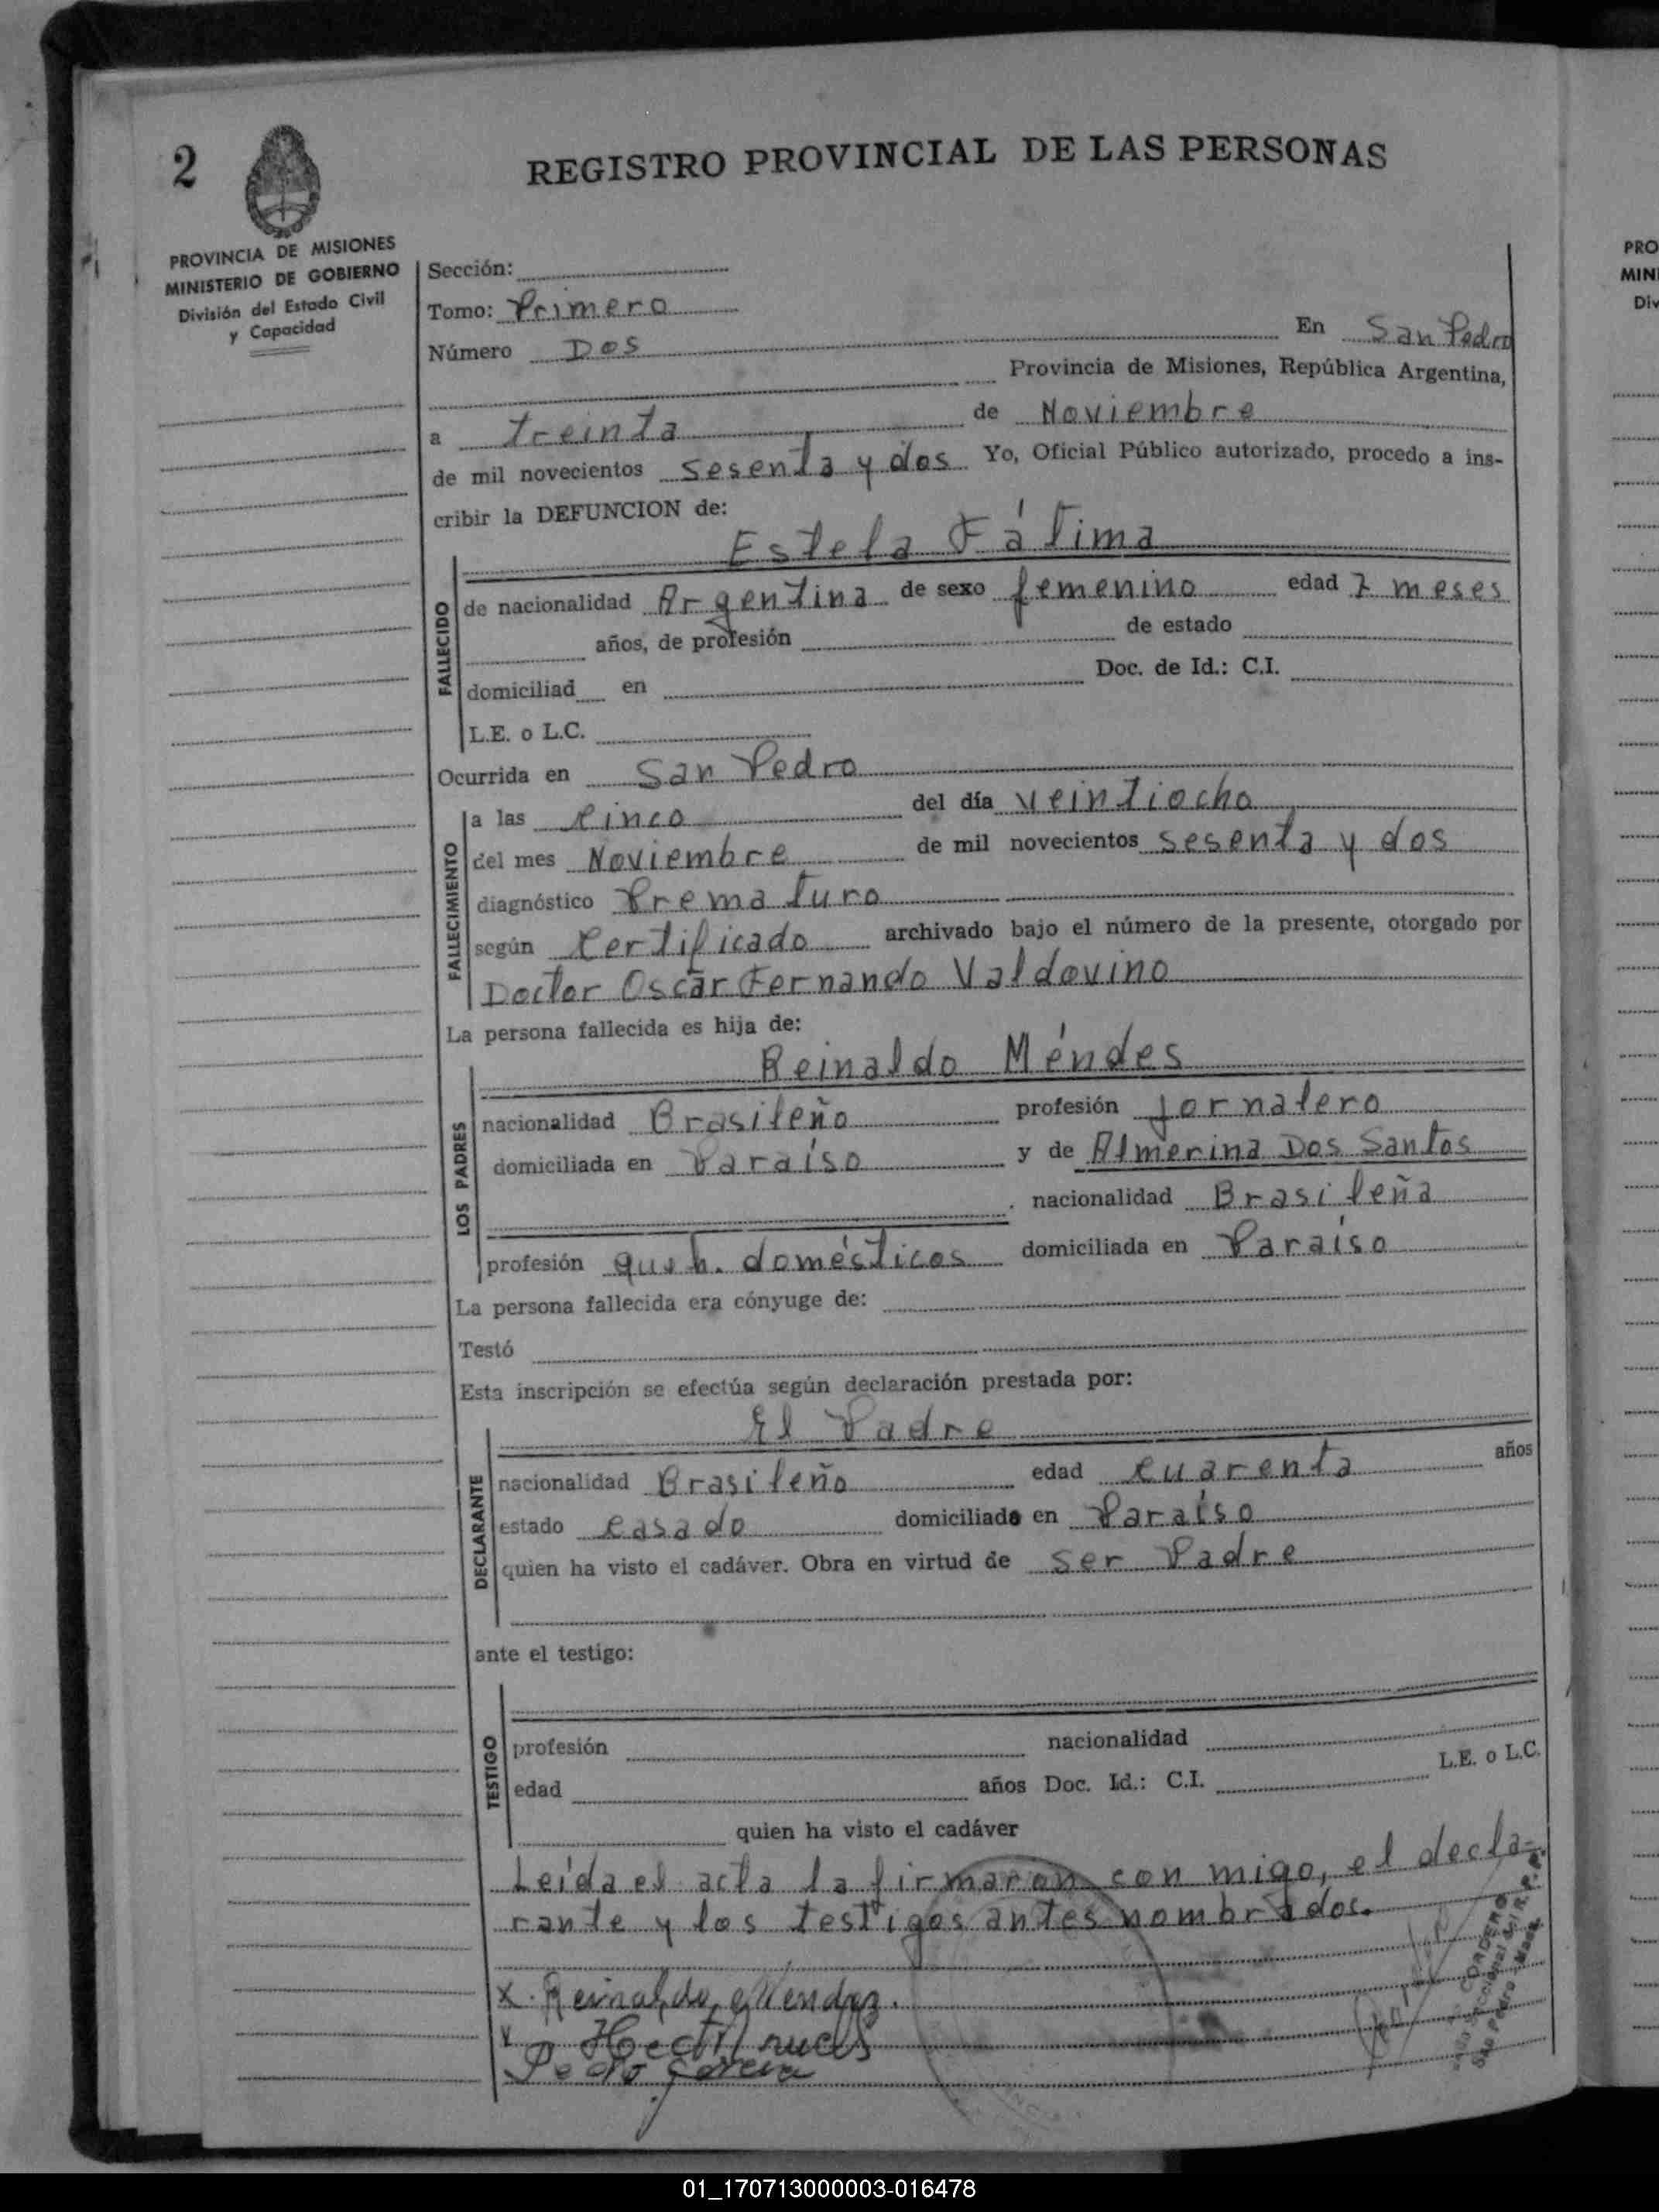 2
REGISTRO PROVINCIAL DE LAS PERSONAS
PROVINCIA DE MISIONES
MINISTERIO DE GOBIERNO
División del Estado Civil
y Capacidad
Sección:
Tomo: Primero
Número Dos En San Pedro
Provincia de Misiones, República Argentina,
a treinta de Noviembre
de mil novecientos sesenta y dos Yo, Oficial Público autorizado, procedo a ins-
cribir la DEFUNCION de:
Estela Fátima
FALLECIDO
de nacionalidad Argentina de sexo femenino edad 7 meses
años, de profesión de estado
domiciliad en Doc. de Id.: C.I.
L.E. o L.C.
Ocurrida en San Pedro
FALLECIMIENTO
a las cinco del día veintiocho
del mes Noviembre de mil novecientos sesenta y dos
diagnóstico Prematuro
según certificado archivado bajo el número de la presente, otorgado por
Doctor Oscar Fernando Valdovino
La persona fallecida es hija de:
Reinaldo Méndes
LOS PADRES
nacionalidad Brasileño profesión jornalero
domiciliada en Paraíso y de Almerina Dos Santos
nacionalidad Brasileña
profesión queh. domésticos domiciliada en Paraíso
La persona fallecida era cónyuge de:
Testó
Esta inscripción se efectúa según declaración prestada por:
El Padre
DECLARANTE
nacionalidad Brasileño edad cuarenta años
estado casado domiciliado en Paraíso
quien ha visto el cadáver. Obra en virtud de ser Padre
ante el testigo:
TESTIGO
profesión nacionalidad
edad años Doc. Id.: C.I. L.E. o L.C.
quien ha visto el cadáver
Leída el acta la firmaron con migo, el decla-
rante y los testigos antes nombrados.
x. Reinaldo Mendez.
Pedro
CORDERO
San Pedro
PRO
MIN
Div
01_170713000003-016478